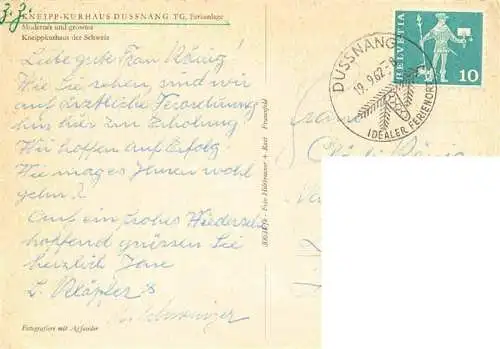 z. Z.
KNEIPP-KURHAUS DUSSNANG TG, Ferienanlage
Modernes und grosstes
Kneippkurhaus der Schweiz
Liebe gute Frau König!
Wie Sie sehen, sind wir
auf ärztliche Verordnung
hin hier zur Erholung
Wir hoffen auf Erfolg!
Wie mag es Ihnen wohl
gehn?
Auf ein frohes Wiedersehn
hoffend grüssen Sie
herzlich Ihre
L. Klöpfer &
Fotografiert mit Agfacolor
Foto Hildbrunner + Rast Frauenfeld
DUSSNANG
19.9.62-8
IDEALER FERIENORT
HELVETIA
10
Frau